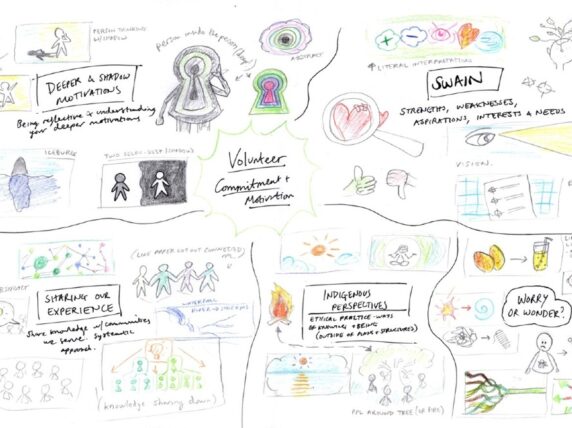 PERSON THINKING
W/SHADOW
DEEPER & SHADOW
MOTIVATIONS
Being reflective & understanding
your deeper motivations
person inside the person
ABSTRACT
ICEBURG
Volunteer
Commitment +
Motivation
LITERAL INTERPRETATIONS
SWAIN
STRENGTHS, WEAKNESSES,
ASPIRATIONS, INTERESTS & NEEDS
VISION.
(LIKE PAPER CUT OUT CONNECTED)
SHARING OUR
EXPERIENCE
Share knowledge w/ communities
we serve. Systematic
approach.
WATERFALL
RIVER →
(knowledge sharing down)
INDIGENOUS
PERSPECTIVES
ETHICAL PRACTICE - WAYS
OF KNOWING + BEING
(OUTSIDE OF PLANS + STRUCTURES)
PPL AROUND TREE (OR FIRE)
WORRY
OR WONDER?